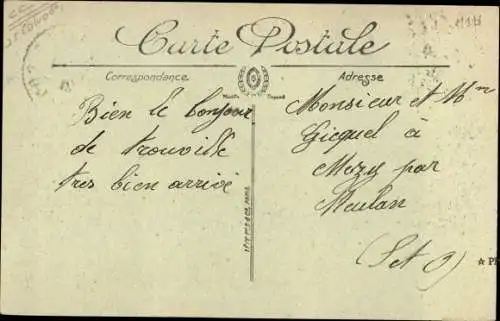 Carte Postale
Correspondance
Adresse
Bien le bonjour
de trouville
tres bien arrivé
Monsieur et Mme
Gicquel à
Mezy par
Meulan
(Set O)